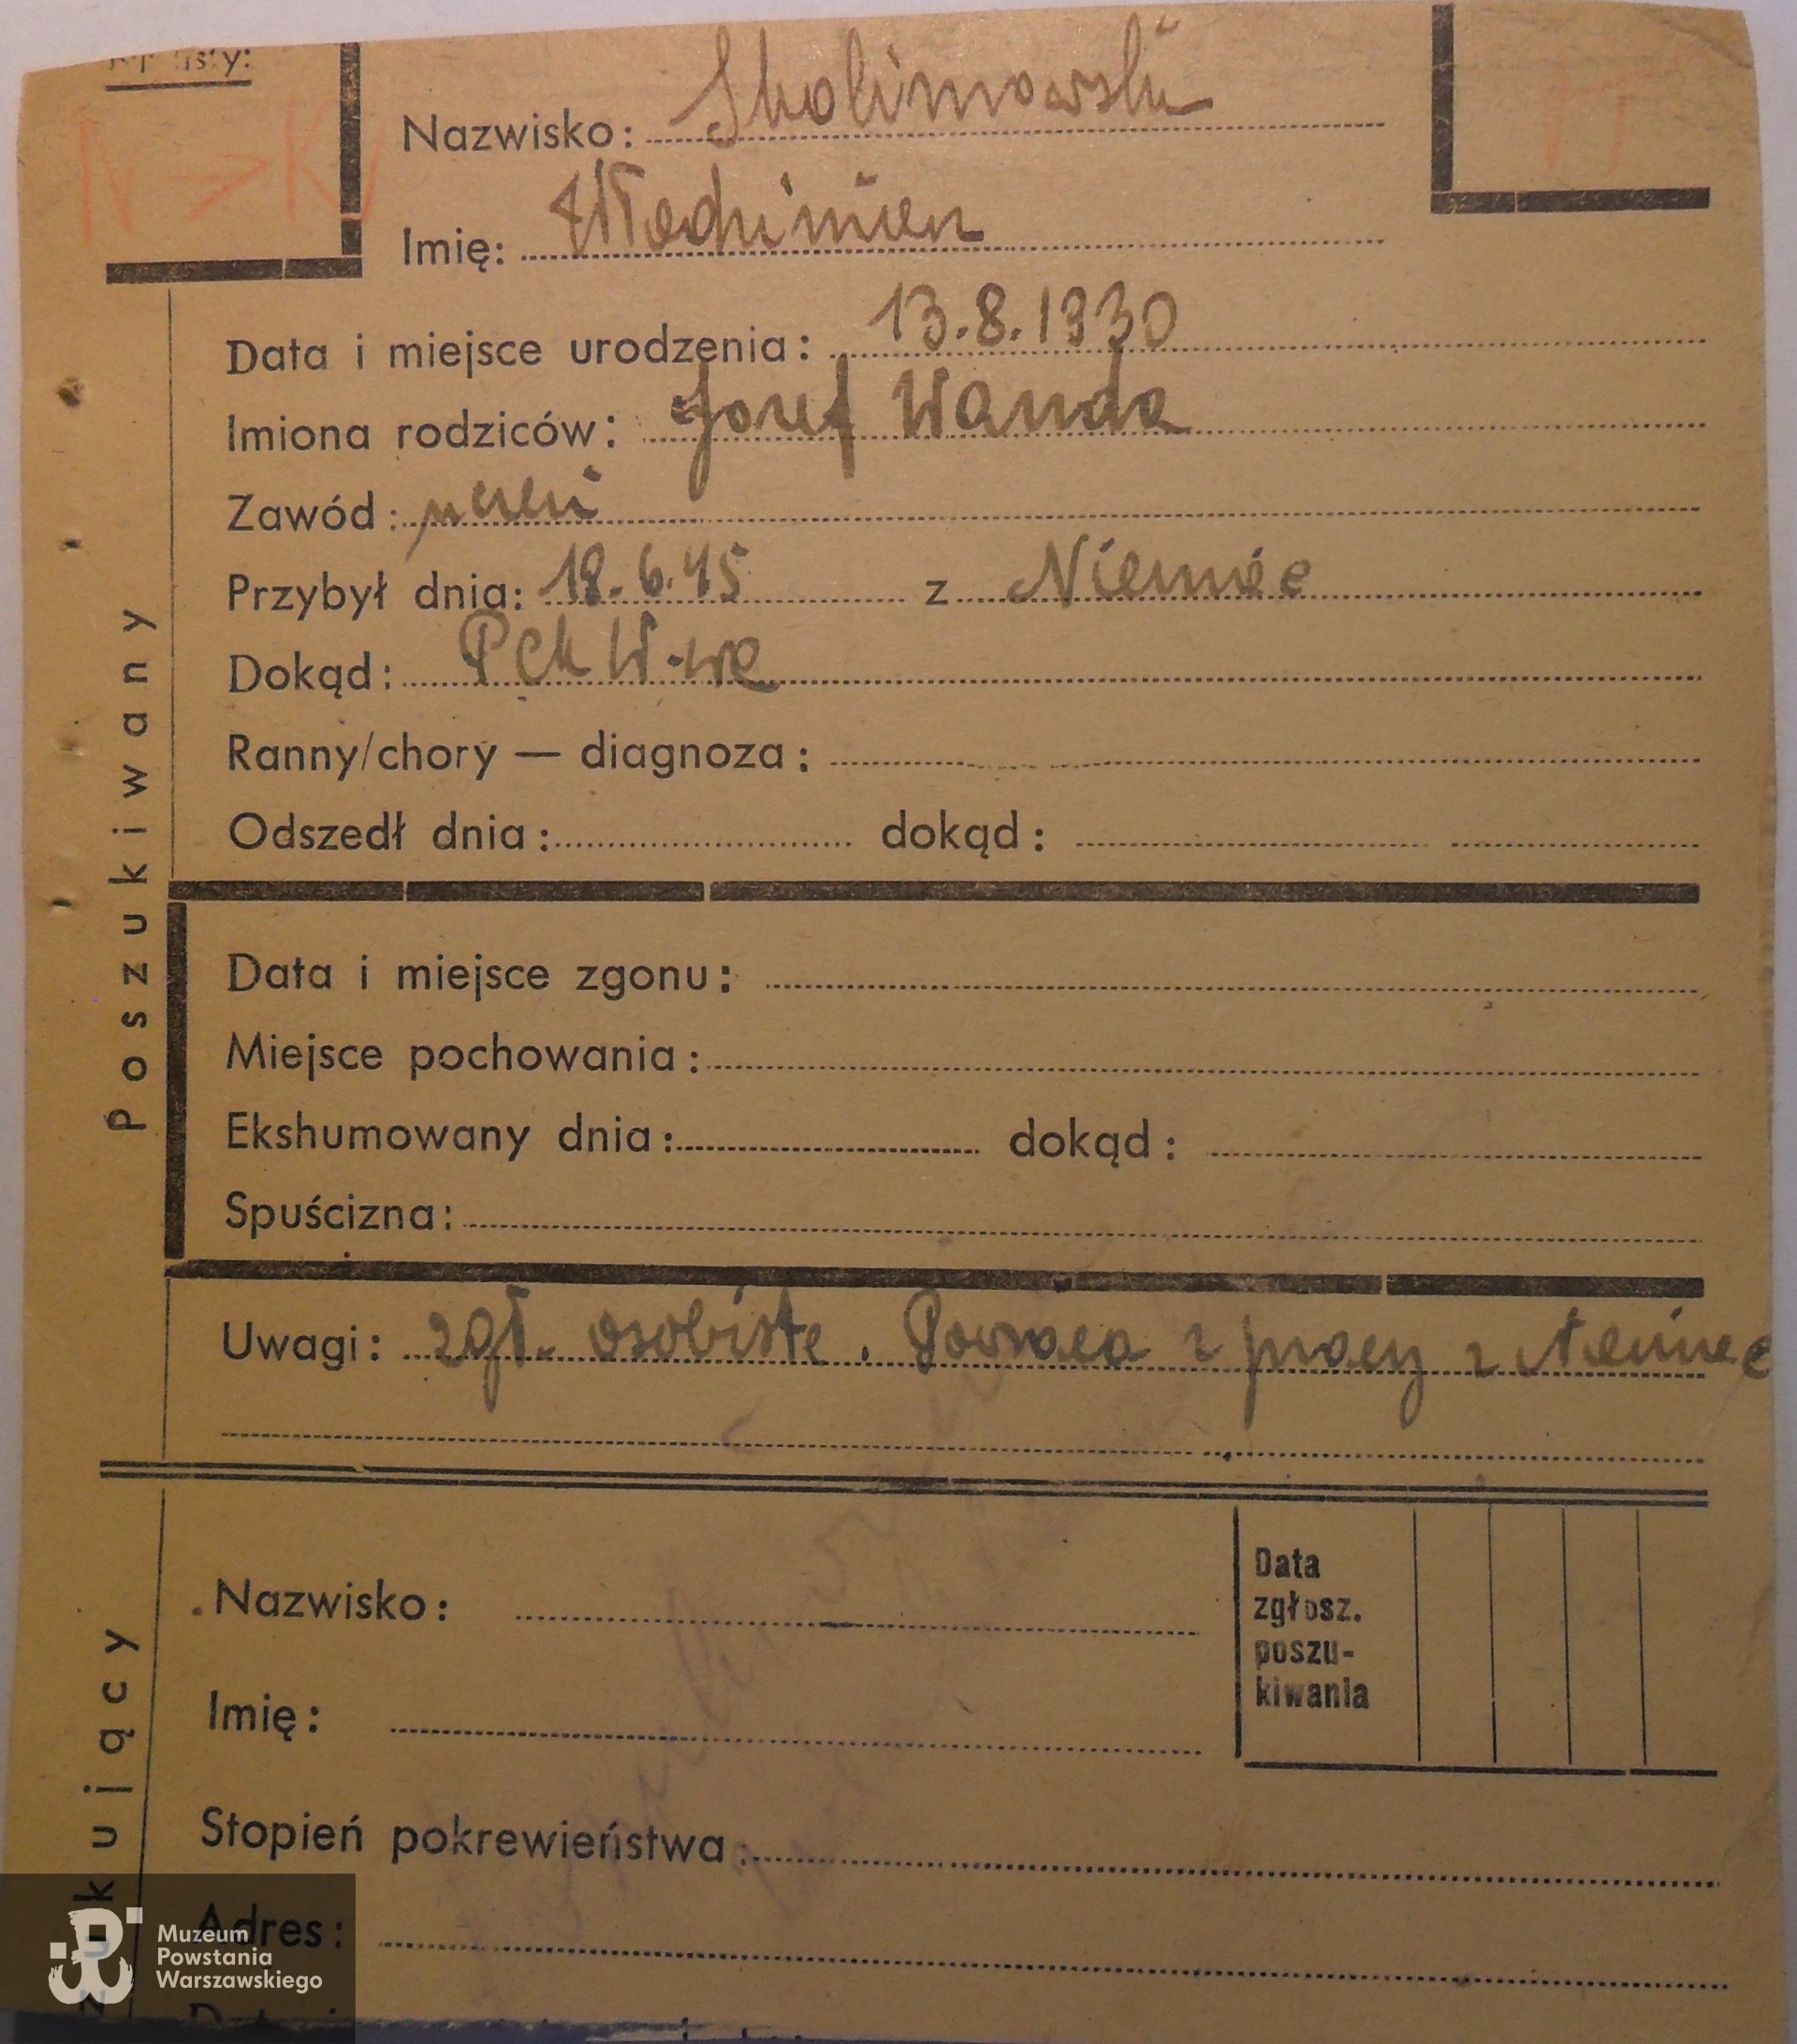 N → K
Nazwisko: Skolimowski
Imię: Włodzimierz
Data i miejsce urodzenia: 13.8.1930
Imiona rodziców: Józef Wanda
Zawód: uczeń
Przybył dnia: 18.6.45 z Niemiec
Dokąd: PCK W-wa
Ranny/chory — diagnoza:
Odszedł dnia: dokąd:
Poszukiwany
Data i miejsce zgonu:
Miejsce pochowania:
Ekshumowany dnia: dokąd:
Spuścizna:
Uwagi: zgł. osobiste. Powraca z pracy z Niemiec
Nazwisko:
Data
zgłosz.
poszu-
kiwania
Imię:
Stopień pokrewieństwa:
Adres:
Muzeum
Powstania
Warszawskiego